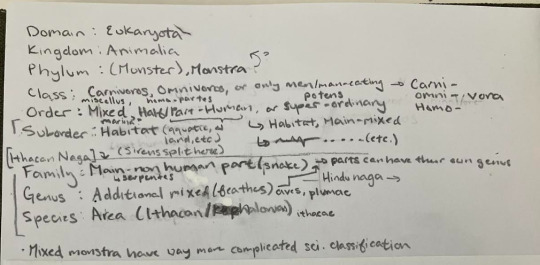 Domain : Eukaryota
Kingdom : Animalia
Phylum : (Monster), Monstra ?
Class : Carnivoros, Omnivoros, or only men/man-eating → Carni-
omni- } vora
Homo-
miscellus, homo-partes potens
Order : Mixed Half/Part-Human, or super-ordinary
marinis
[ Suborder : Habitat (aquatic, land, etc) ↳ Habitat, Main-mixed
(Sirens split here) ↳ ...... (etc.)
[Ithacan Naga]
Family : Main-non human part (snake) → parts can have their own genus
serpentes Hindu naga →
Genus : Additional mixed (feathers) aves, plumae
Species : Area (Ithacan/Kephalonian) ithacae
• Mixed monstra have way more complicated sci. classification